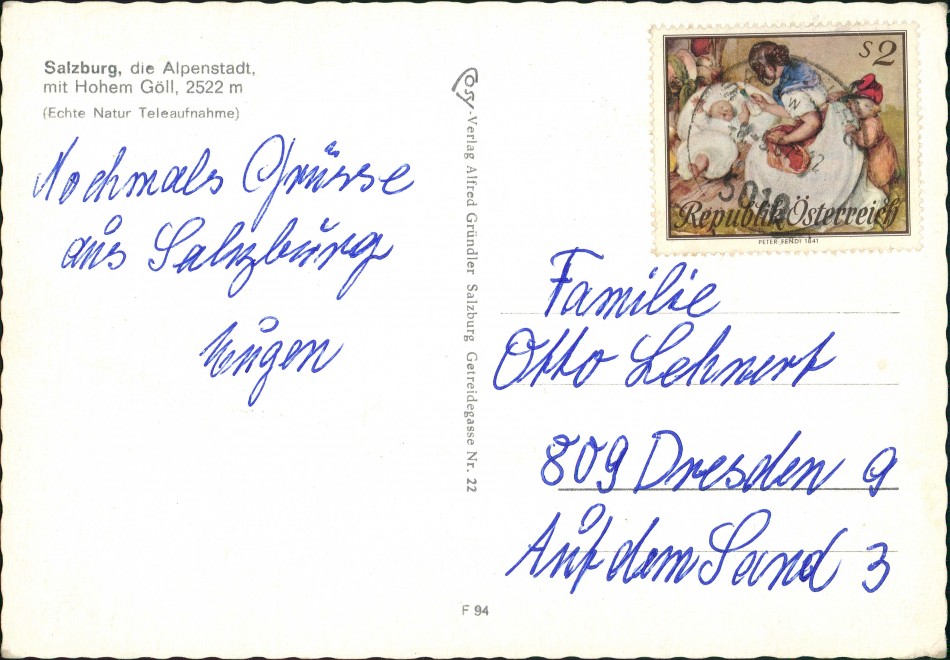 Salzburg, die Alpenstadt,
mit Hohem Göll, 2522 m
(Echte Natur Teleaufnahme)
Nochmals Grüsse
aus Salzburg
Eugen
Cosy-Verlag Alfred Gründler Salzburg Getreidegasse Nr. 22
F 94
S 2
Republik Österreich
PETER FENDI 1841
Familie
Otto Lehnert
809 Dresden 9
Auf dem Sand 3